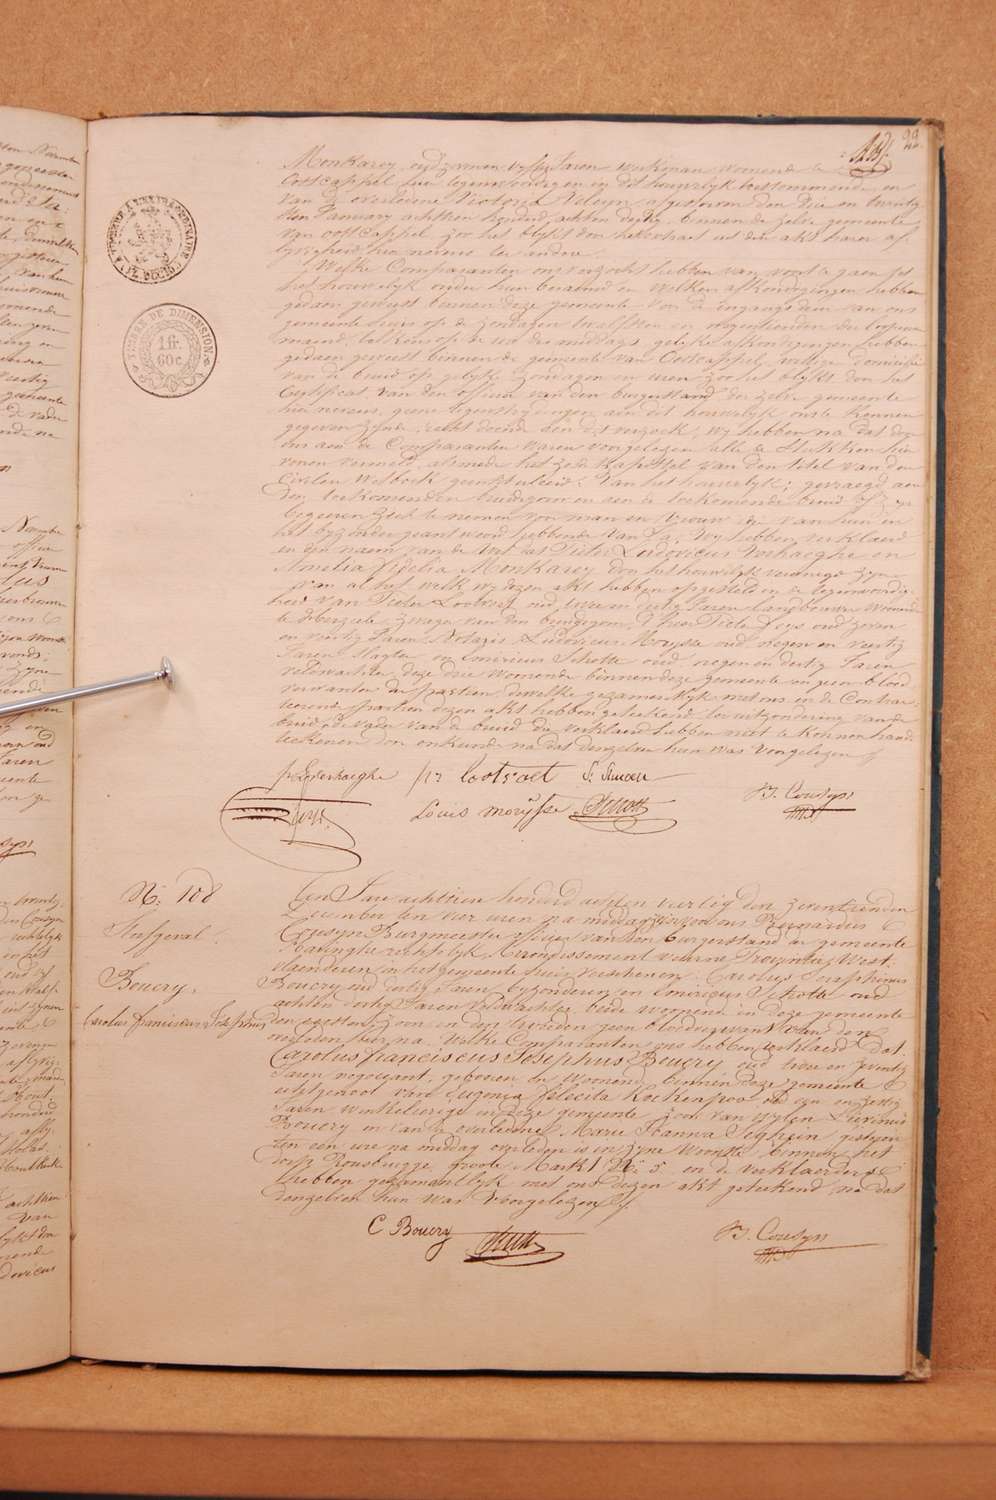 22
TIMBRE A L'EXTRAORDINAIRE
TIMBRE DE DIMENSION.
1 fr.
60 c.
Monkarey, oud zeven vyftig Jaren werkman woonende te
Oostcappel hier tegenwoordig en in dit houwelyk toestemmende en
van de overledene Victoria Neleyn afgestorven den drie en twintig
sten January achttien honderd achtien binnen de zelve gemeente
van oostcappel zoo het blykt door het extract uit den akt harer af
lyvigheid hier nevens ter andere.
Welke Comparanten ons verzocht hebben van voort te gaen tot
het houwelyk onder hun beraemd en welkers afkondigingen hebben
gedaen geweest binnen deze gemeente voor de ingangdeur van ons
gemeente huis op de zondagen twaelfsten en negentienden der loopende
maend, telkens op de ure des middags, gelyke afkondigingen hebben
gedaen geweest binnen de gemeente van Oostcappel, wettige domicilie
van de bruid op gelyke zondagen en uren zoo het blykt door het
Certificat van den officier van den burgerstand der zelve gemeente
hier nevens, geene tegenstrydigheden aen dit houwelyk ons te kennen
gegeven zynde, recht doende aen dit verzoek, wy hebben na dat door
ons aen de Comparanten waren voorgelezen alle de stukken hier
voren vermeld, alsmede het zesde kapittel van den titel van den
Civilen Wetboek geintituleerd: Van het houwelyk; gevraegd aen
den toekomenden bruidegom en aen de toekomende bruid of zy
begeeren zich te nemen voor man en vrouw, zy van hun en
het byzonder geantwoord hebbende van Ja, wy hebben verklaerd
in den naem van de Wet dat Pieter Ludovicus Verhaeghe en
Amelia Fidelia Monkarey door het houwelyk vereenigd zyn
van al het welk wy dezen akt hebben opgesteld in de tegenwoordig
heid van Pieter Lootvoet oud twee en dertig Jaren Landbouwer woonende
te Herzeele zwager van den bruidegom,
en veertig Jaren, Notaris Ludovicus Morysse oud negen en veertig
Jaren slagter en Emiricus Schotte oud negen en dertig Jaren
veldwachter, deze drie woonende binnen deze gemeente en geen bloed
verwanten der partien, dewelke gezamentlyk met ons en de Contrac
teerende partien dezen akt hebben geteekend ter uitzondering van de
bruid en de vader van de bruid die verklaerd hebben niet te konnen hand
teekenen door onkunde na dat denzelven hun was voorgelezen
p Lverhaeghe
pr lootvoet
Louis morÿsse
Schotte
B. Cousyn
N: 108
Sterfgeval.
Boucry.
Carolus franciscus Josephus
Ten Jare achttien honderd achten veertig den zeventienden
December ten vier uren na middag zyn voor ons Bernardus
Cousyn Burgmeester officier van den burgerstand der gemeente
Rousbrugge Arrondissement veurne Provintie West
vlaenderen in het gemeente huis verschenen: Carolus Seraphinus
Boucry oud dertig Jaren byzonderen en Emiricus Schotte oud
achten dertig Jaren veldwachter, beide woonende in deze gemeente
den eersten zoon en den tweeden geen bloedverwant van den
overleden hier na. Welke Comparanten ons hebben verklaerd dat
Carolus franciscus Josephus Boucry oud twee en zeventig
Jaren negociant, geboren en woonende binnen deze gemeente
echtgenoot van Eugenia Felicita Kockenpoo oud een en zestig
Jaren winkelierige in deze gemeente, zoon van wylen Livinus
Boucry en van de overledene Marie Joanna Seghein, gisteren
ten een ure na middag overleden is in zyne woonste binnen het
dorp Rousbrugge groote Markt N: 5 en de verklaerders
hebben gezamentlyk met ons dezen akt geteekend na dat
denzelven hun was voorgelezen
C Boucry
Schotte
B. Cousyn